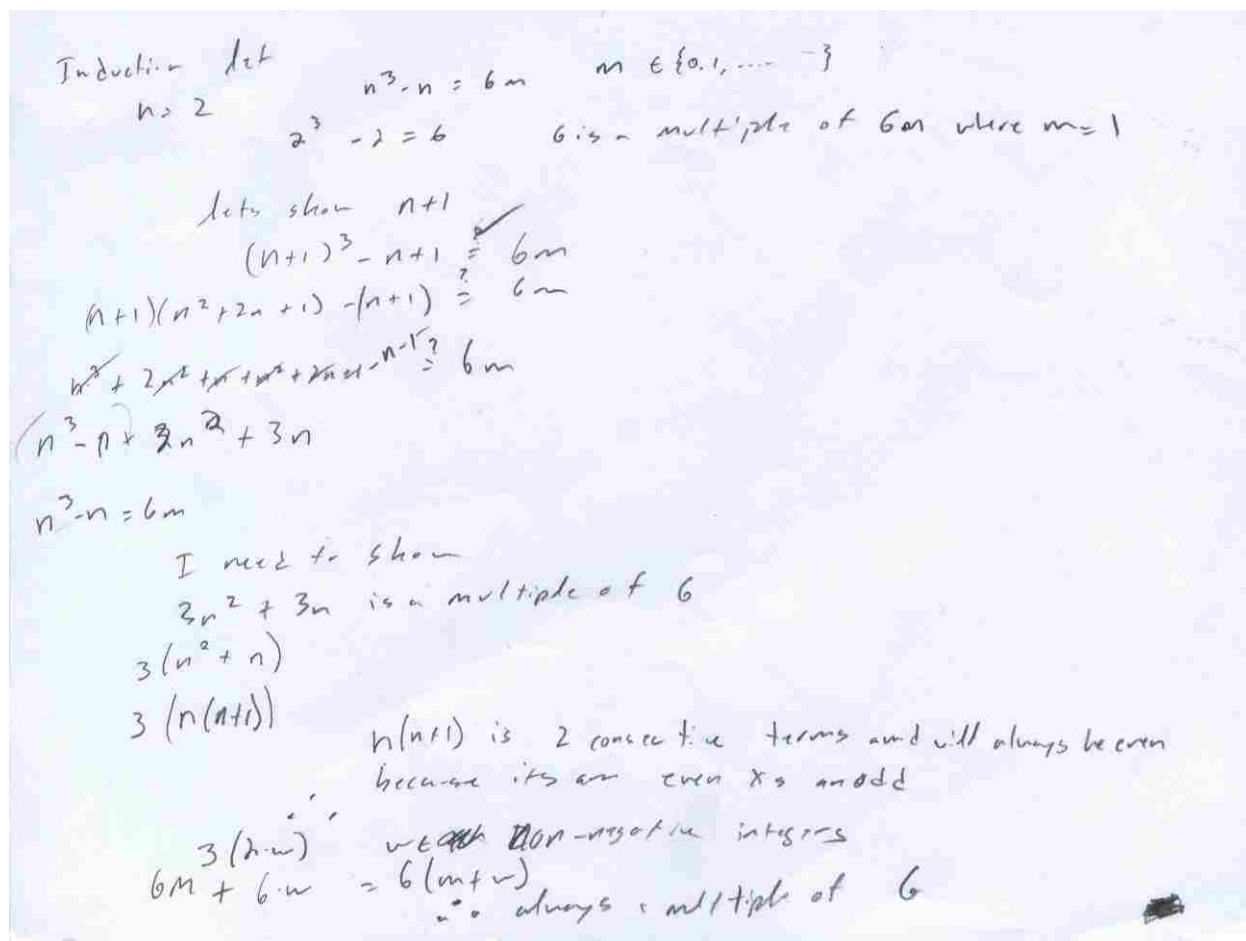 Induction let
n = 2 n³-n = 6m m ∈ {0,1,.....}
2³ - 2 = 6 6 is a multiple of 6m where m=1
lets show n+1
(n+1)³ - n+1 ≟ 6m
(n+1)(n²+2n+1) -(n+1) ≟ 6m
n³ + 2n² + n + n² + 2n+1 -n-1 ≟ 6m
(n³-n) + 3n² + 3n
n³-n = 6m
I need to show
3n² + 3n is a multiple of 6
3(n² + n)
3(n(n+1))
n(n+1) is 2 consective terms and will always be even
because its an even xs an odd
∴
3(2·w) w ∈ non-negative integers
6m + 6·w = 6(m+w)
∴ always a multiple of 6